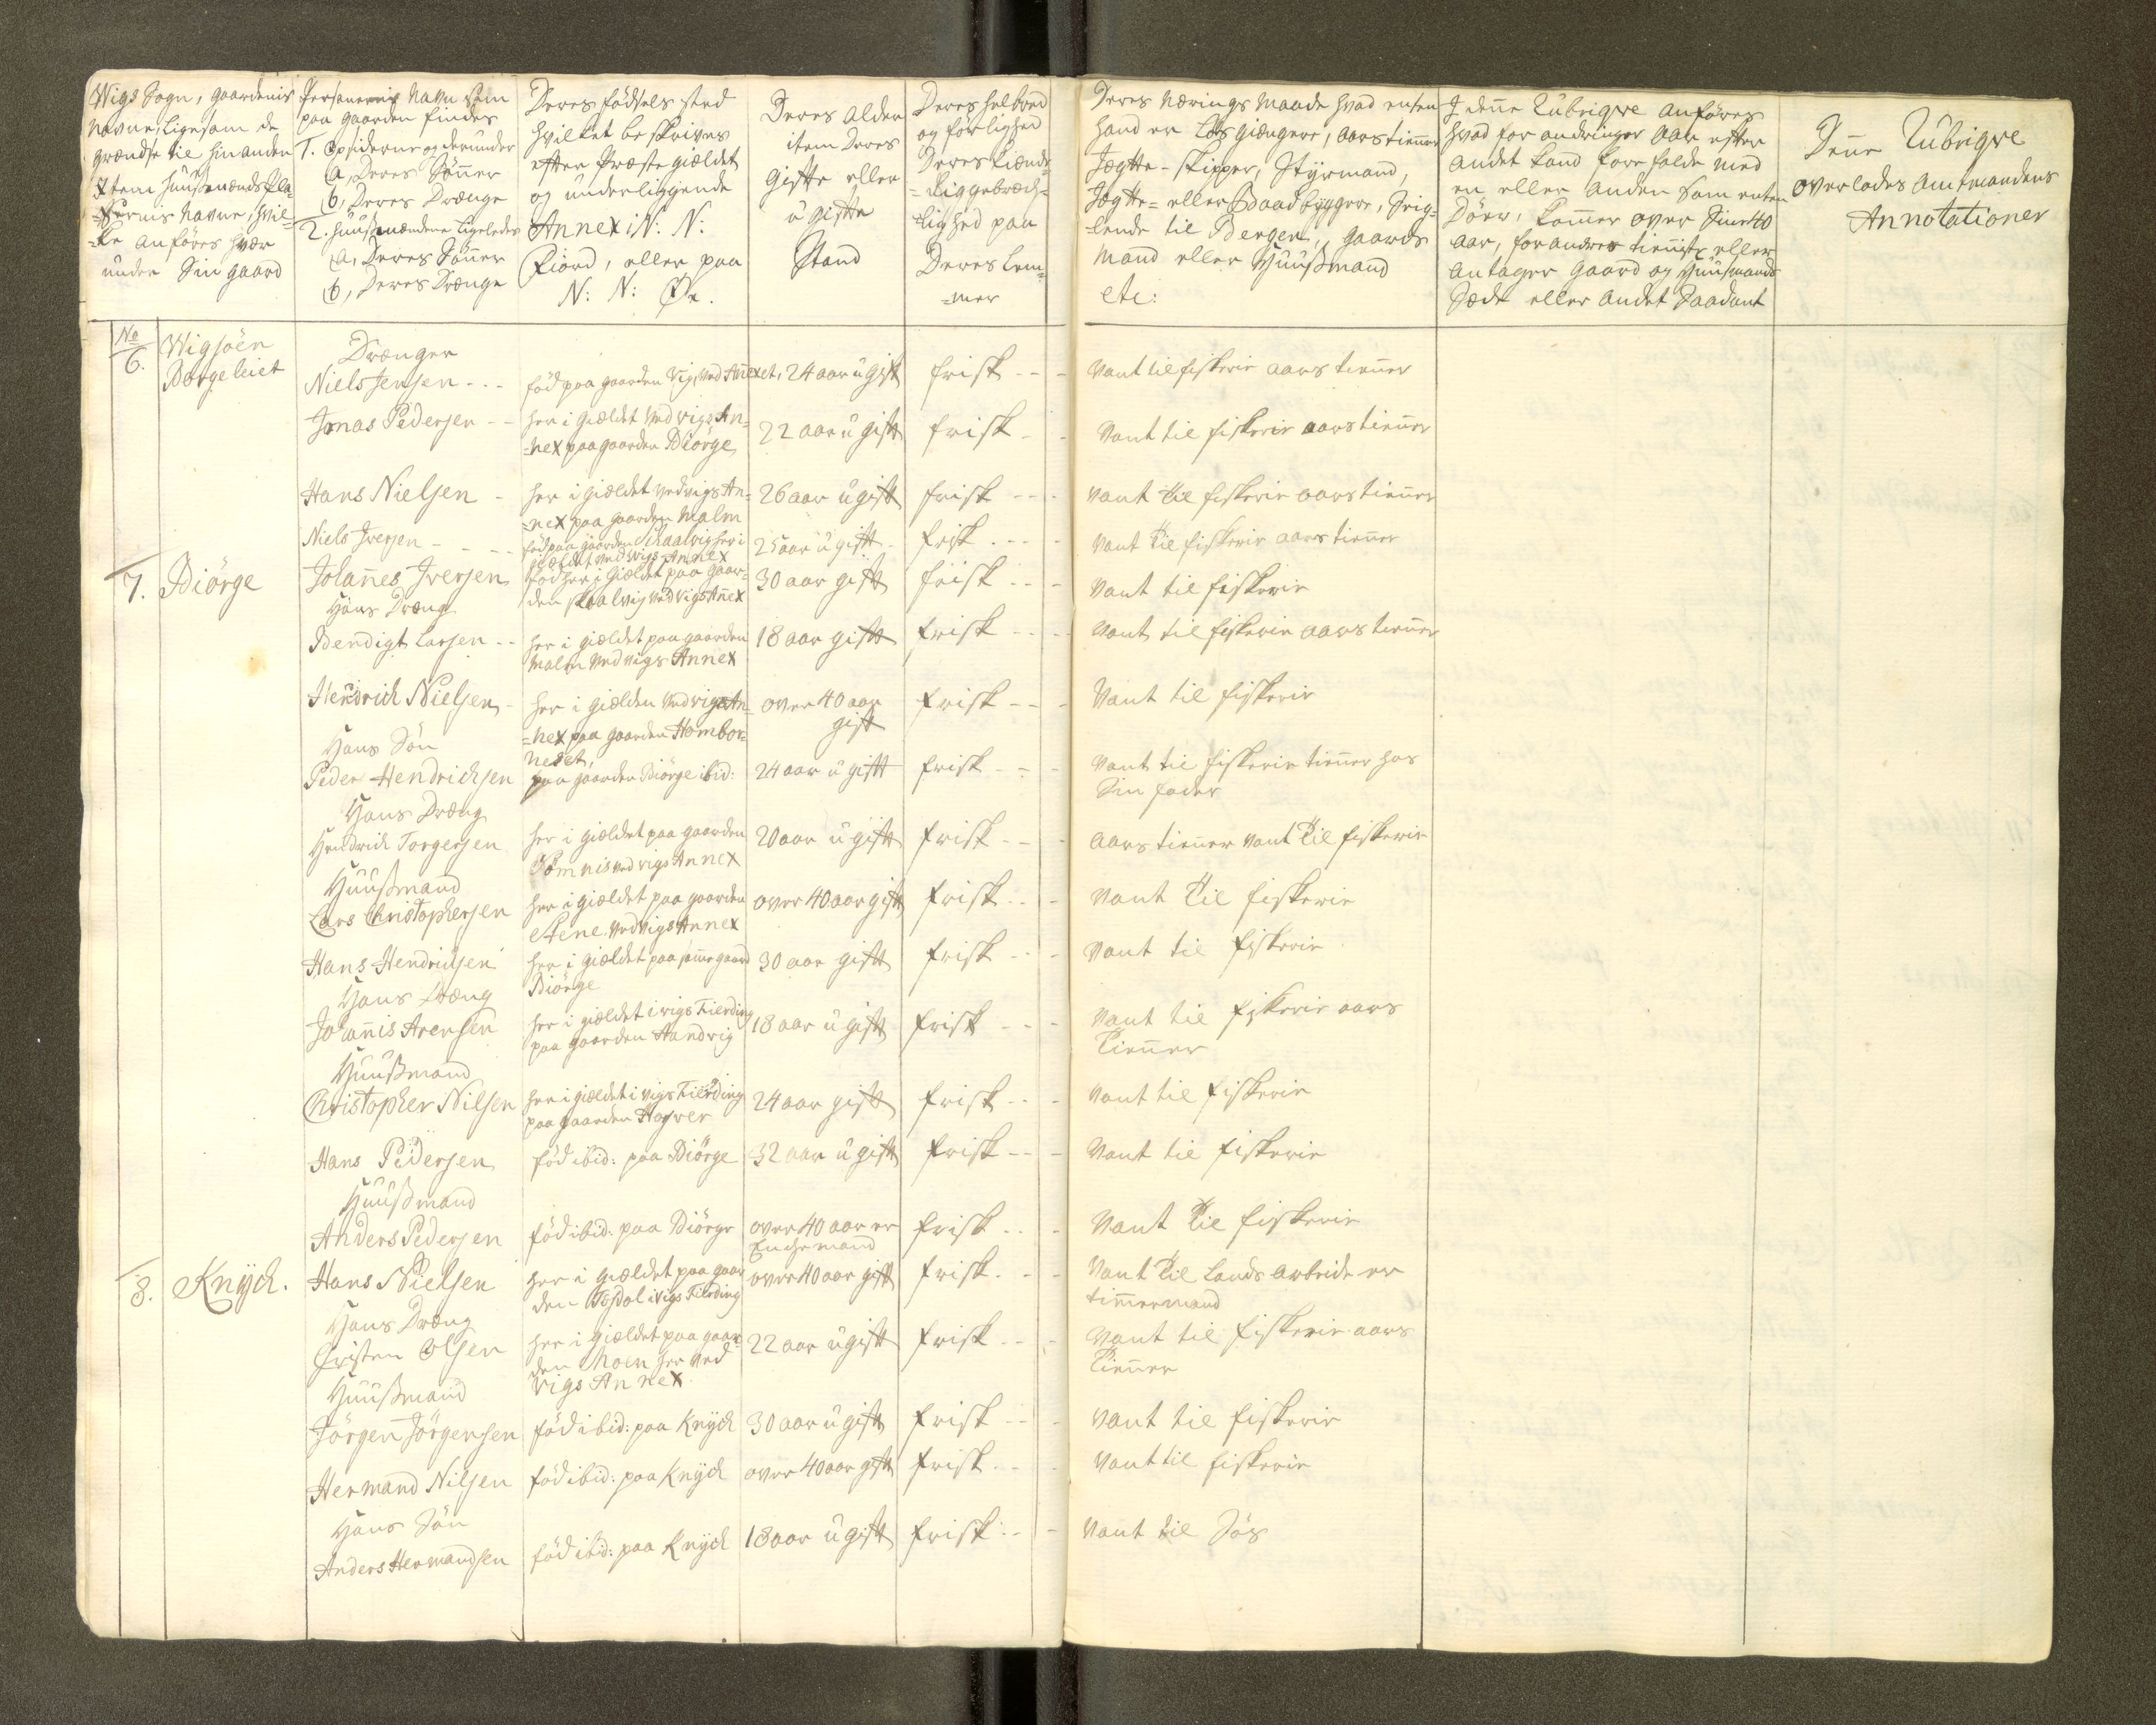 Wigs Sogn, gaardenis
Navne, ligesom de
grændse til hinanden
Item Huusmænds Pla-
-zernis Navne, hvil-
-ke anföres hver
under Sin gaard
Personernis Navn som
paa gaarden findes
1. Opsiderne og derunder
a, Deres Sönner
b, Deres Drænge
2. Huusmændene ligeledes
a, Deres Sönner
b, Deres Drænge
Deres födsels sted
hvilket beskrives
efter Præstegieldet
og underliggende
Annex i N: N:
Fiord, eller paa
N: N: Öe.
Deres Alder
item Deres
gifte eller
ugifte
Stand
Deres helbred
og förlighed
Deres kiænde-
-lighed paa
Deres lem-
-mer
Deres Nærings Maade hvad enten
hand er Lösgiængere, aars tienner
Jægtte-skipper, Styrmand,
Jægtte- eller Baadbyggere, Seig-
-lende til Bergen, gaards
Mand eller Huusmand
etc:
I denne Rubrigve anföres
hvad forandringer Aar efter
andet kand forefalde med
en eller anden som enten
Döer, kommer over Sine 40
aar, forandres tienniste eller
antager gaard og Huusmands
Sæde eller andet Saadant
Denne Rubrigve
overlades Amtmandens
Annotationer
No
6. Wigsöen
Borgeleiet
Drænger
Niels Jensen - - - föd paa gaarden Vig, ved Annexet, 24 aar ugift frisk - - - Vant til fiskerie aars tienner
Jonas Pedersen - - her i gieldet ved vigs An-
-nex paa gaarden Biörge 22 aar ugift frisk - - Vant til fiskerie aars tienner
Hans Nielsen - her i gieldet ved vigs An-
-nex paa gaarden Malm 26 aar ugift frisk - - - Vant til fiskerie aars tienner
Niels Iversen - - - föd paa gaarden Skaalvig her i
gieldet ved vigs Annex 25 aar ugift - frisk - - - Vant til fiskerie aars tienner
7. Biörge Johannes Iversen föd her i gieldet paa gaar-
den skaalvig ved vigs Annex 30 aar gift frisk - - - Vant til fiskerie
Hans Dræng
Bendigt Larsen - - her i gieldet paa gaarden
Malm ved vigs Annex 18 aar gift frisk - - - Vant til fiskerie aars tienner
Hendrich Nielsen - her i gielden ved vigs An-
-nex paa gaarden Hombor-
neset, over 40 aar
gift frisk - - - Vant til fiskerie
Hans Sön
Peder Hendrichsen paa gaarden Biörge ibid: 24 aar ugift frisk - - - Vant til fiskerie tienner hos
Sin fader
Hans Dræng
Hendrich Torgersen her i gieldet paa gaarden
Tomnis ved vigs Annex 20 aar ugift frisk - - - aars tienner vant til fiskerie
Huusmand
Lars Christophersen her i gieldet paa gaarden
Stene ved vigs Annex over 40 aar gift frisk - - - Vant til fiskerie
Hans Hendrichsen her i gieldet paa samme gaard
Biörge 30 aar gift frisk - - - Vant til fiskerie
Hans Dræng
Johannis Arensen her i gieldet i vigs Fierding
paa gaarden Handvig 18 aar ugift frisk - - - Vant til fiskerie aars
tienner
Huusmand
Christopher Nilsen her i gieldet i vigs Fierding
paa gaarden 24 aar gift frisk - - - Vant til fiskerie
Hans Pedersen föd ibid: paa Biörge 32 aar ugift frisk - - - Vant til fiskerie
Huusmand
Anders Pedersen föd ibid: paa Biörge over 40 aar er
Enchemand frisk - - - Vant til fiskerie
8. Knÿch. Hans Nielsen her i gieldet paa gaar
den i vigs Fierding over 40 aar gift frisk - - - Vant til Lands arbeide er
timmermand
Hans Dræng
Cristen Olsen her i gieldet paa gaar-
den Moen her ved
Vigs Annex 22 aar ugift frisk - - - Vant til fiskerie aars
tienner
Huusmand
Jörgen Jörgensen föd ibid: paa Knÿch 30 aar ugift frisk - - - Vant til fiskerie
Hermand Nilsen föd ibid: paa Knÿch over 40 aar gift frisk - - - Vant til fiskerie
Hans Sön
Anders Hermandsen föd ibid: paa Knÿch 18 aar ugift frisk - - - Vant til Söes